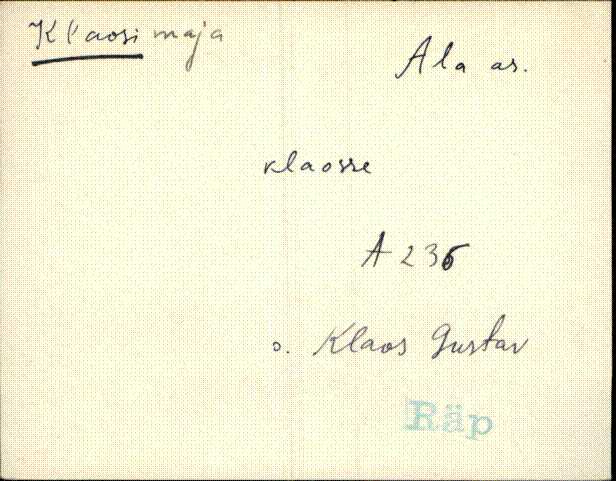 Kl'aosi maja
Ala as.
klaosse
A 236
o. Klaos Gustav
Räp